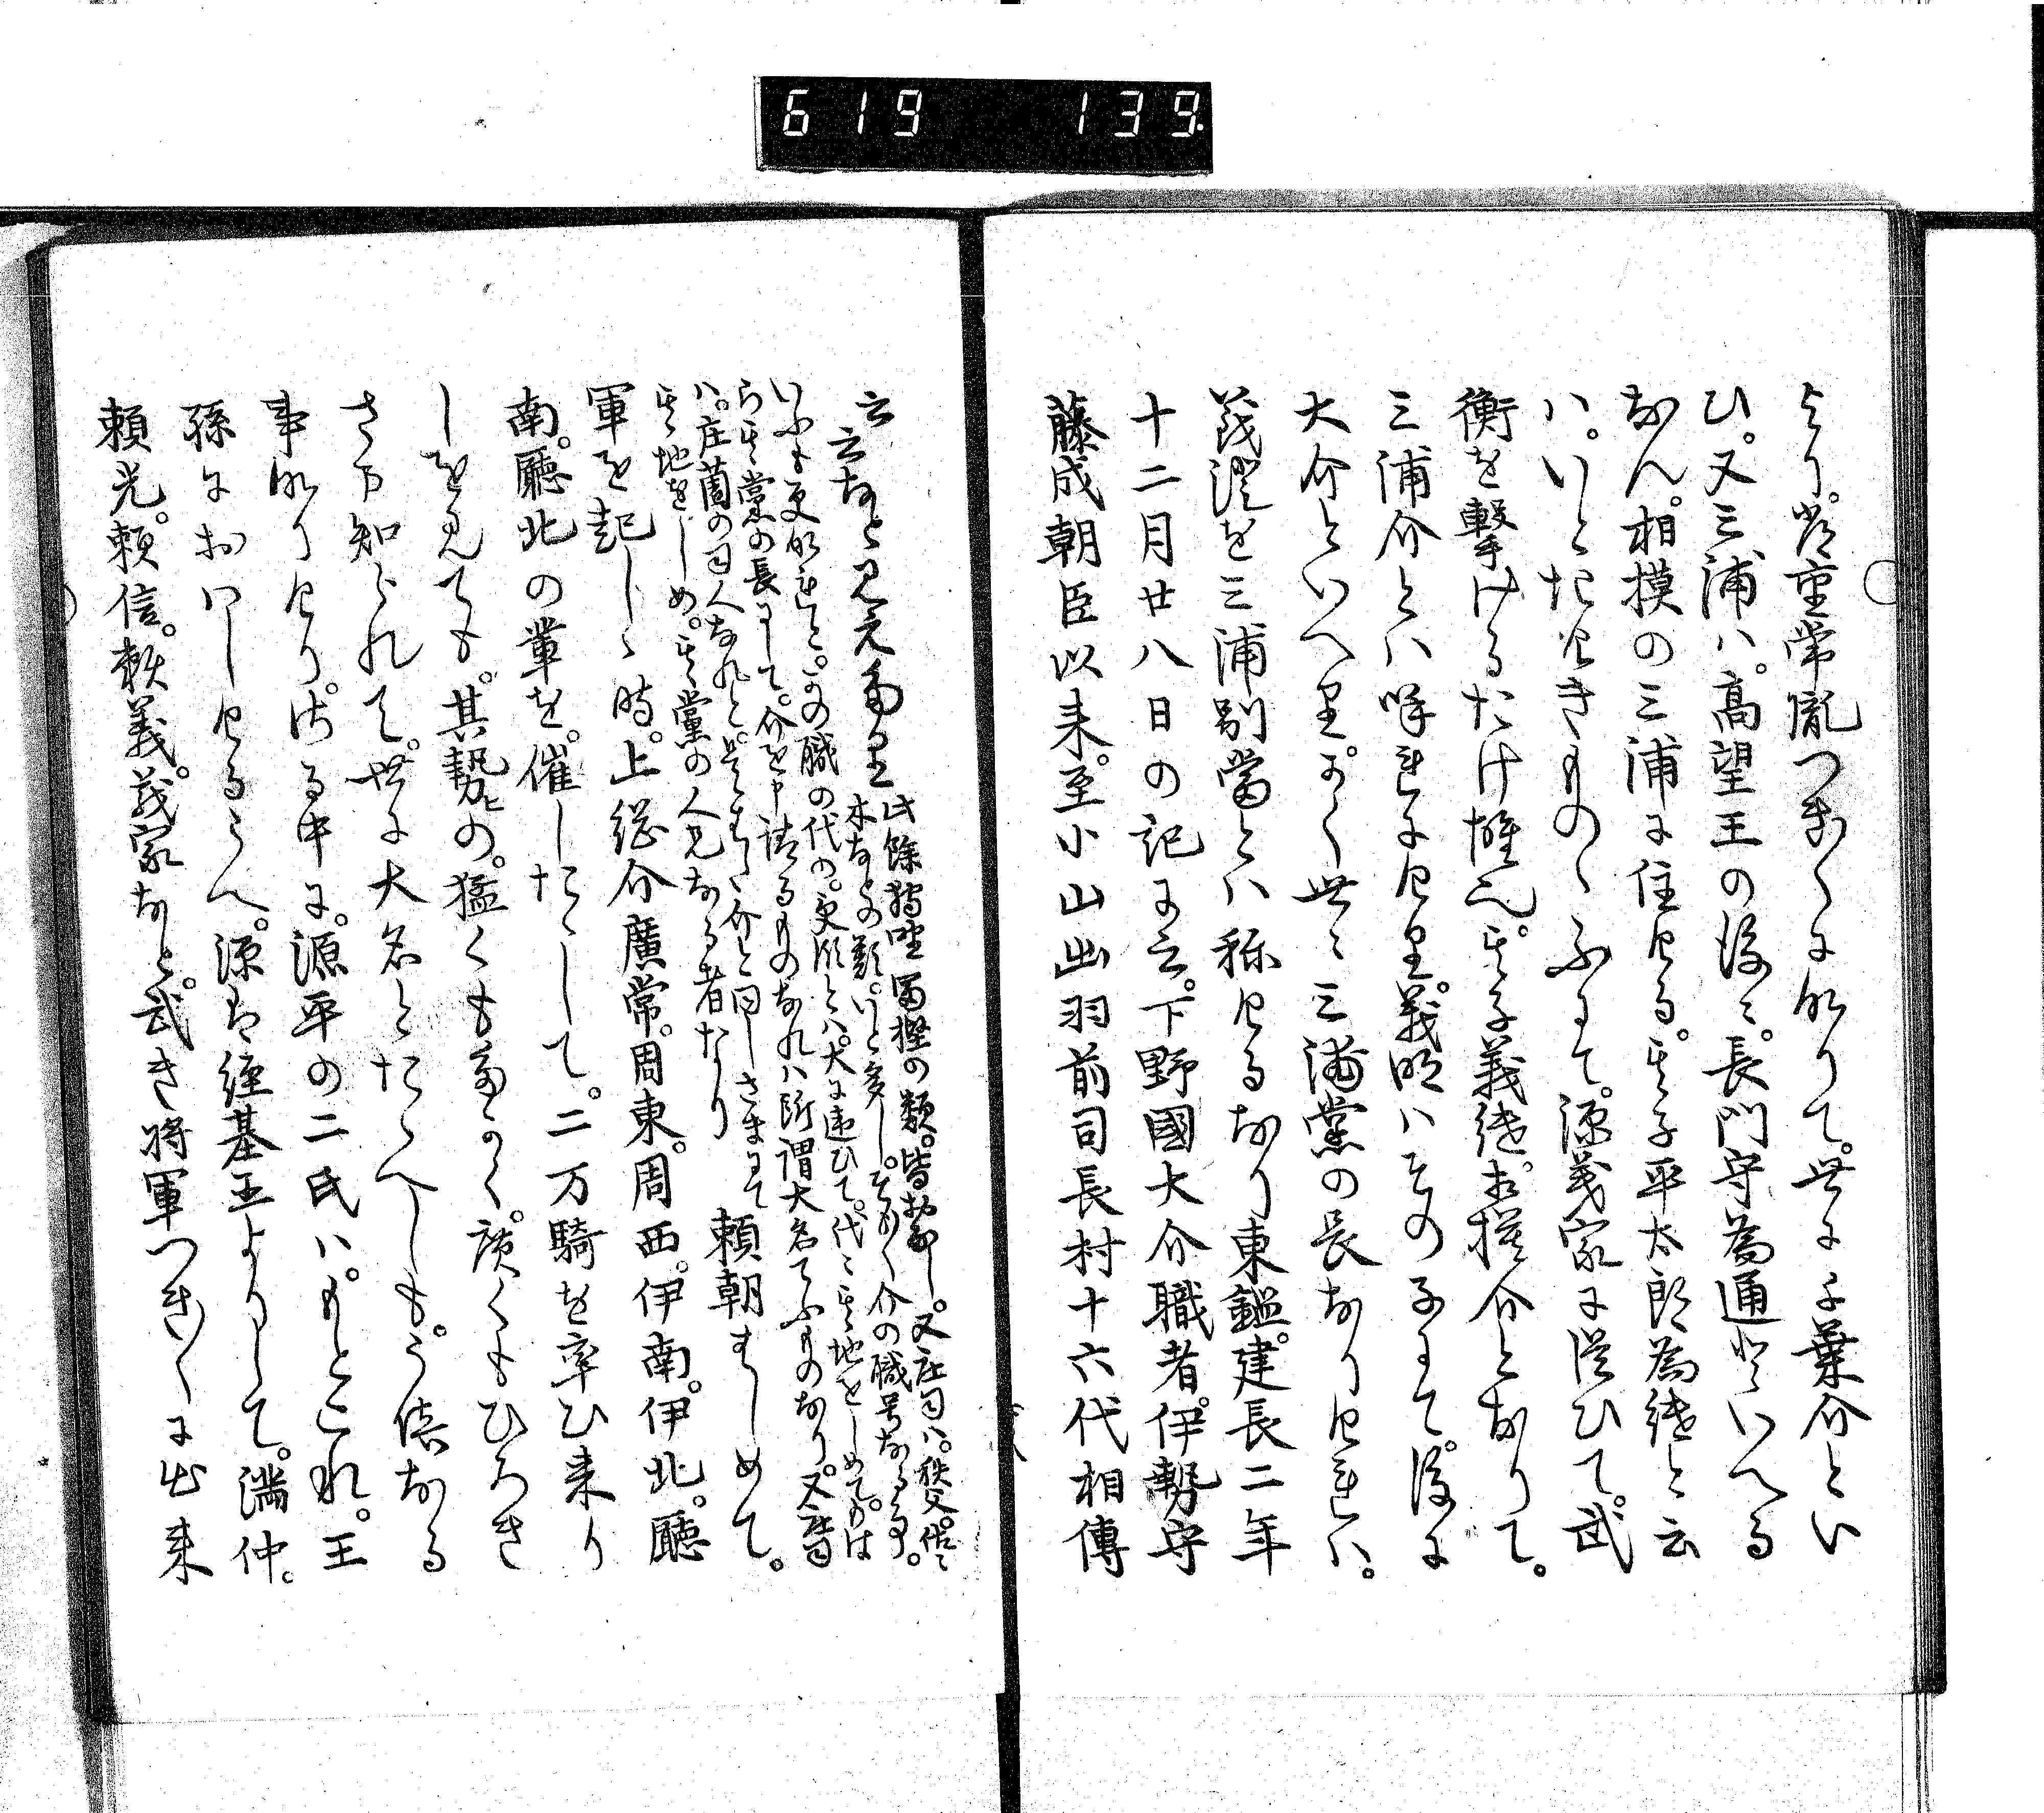 619 139
より。常重常胤つぎ〱に成りて。世に千葉介とい
ひ。又三浦ハ。高望王の後に。長門守為通といへる
なん。相摸の三浦に住ける。其子平太郎為継と云
ハ。いとたけきものゝふにて。源義家に従ひて。武
衡を撃けるたけ雄也。其子義継。相摸介となりて。
三浦介とハ呼れにけり。義明ハその子にて。後に
大介といへり。かく世々三浦党の長なりければ。
義澄を三浦別當とハ称けるなり東鑑。建長二年
十二月廿八日の記に云。下野國大介職者。伊勢守
藤成朝臣以来。至小山出羽前司長村十六代相傳
云云なと見えたり 此餘狩野冨樫の類。皆おなし。又庄司ハ。秩父。佐々
木などの類。いと多し。そもそも介の職号なる事。
いふも更なれと。その職の代の。更りしとハ。大に違ひて。代々其地をしめて。おは
ら其黨の長にして。介を申請るものなれハ所謂大名てふものなり。又庄司
ハ。庄薗の司人なれと。是も介と同しさまにて
其地をしめ。其黨の人兄なる者なり 頼朝はしめて。
軍を起しゝ時。上総介廣常。周東。周西。伊南。伊北。廳
南。廳北の輩を。催したゝして。二万騎を率ひ来り
しを見ても。其勢ヒの。猛くも高かく。廣くもひろき
さま知られて。世に大名とたゝへしも。うべなる
事なりけり。さる中に。源平の二氏ハ。もとこれ。王
孫におはしけるうへ。源は経基王よりして。満仲。
頼光。頼信。頼義。義家なと。武き将軍つぎ〱に出来